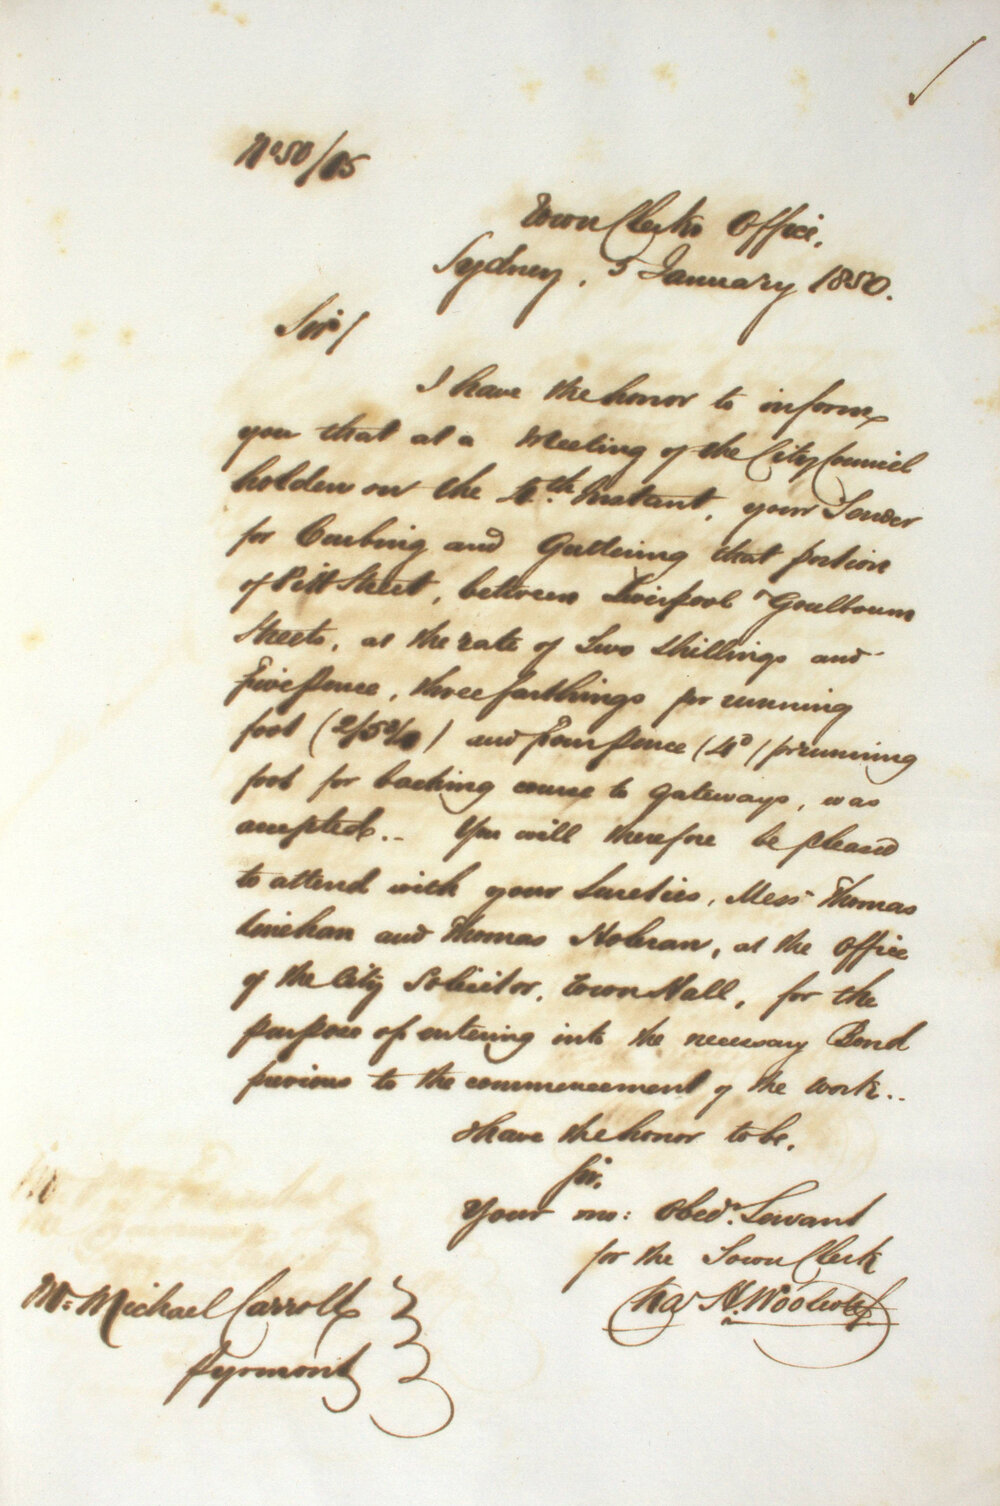 No 50/05
Town Clerks Office,
Sydney, 5 January 1850.
Sir/
I have the honor to inform
you that at a Meeting of the City Council
holden on the 4th Instant, your Tender
for Curbing and Guttering that portion
of Pitt Street, between Liverpool & Goulbourn
Streets, at the rate of Two Shillings and
Five pence, three farthings pr running
foot (2/5¾) and four pence (4d) pr running
foot for backing course to gateways, was
accepted.. You will therefore be pleased
to attend with your Sureties, Messrs Thomas
Linehan and Thomas Hoberan, at the Office
of the City Solicitor, Town Hall, for the
purpose of entering into the necessary Bond
previous to the commencement of the work..
I have the honor to be,
Sir,
Your mo: Obedt. Servant
for the Town Clerk
Chas H. Woolcott
Mr. Michael Carroll
Pyrmont